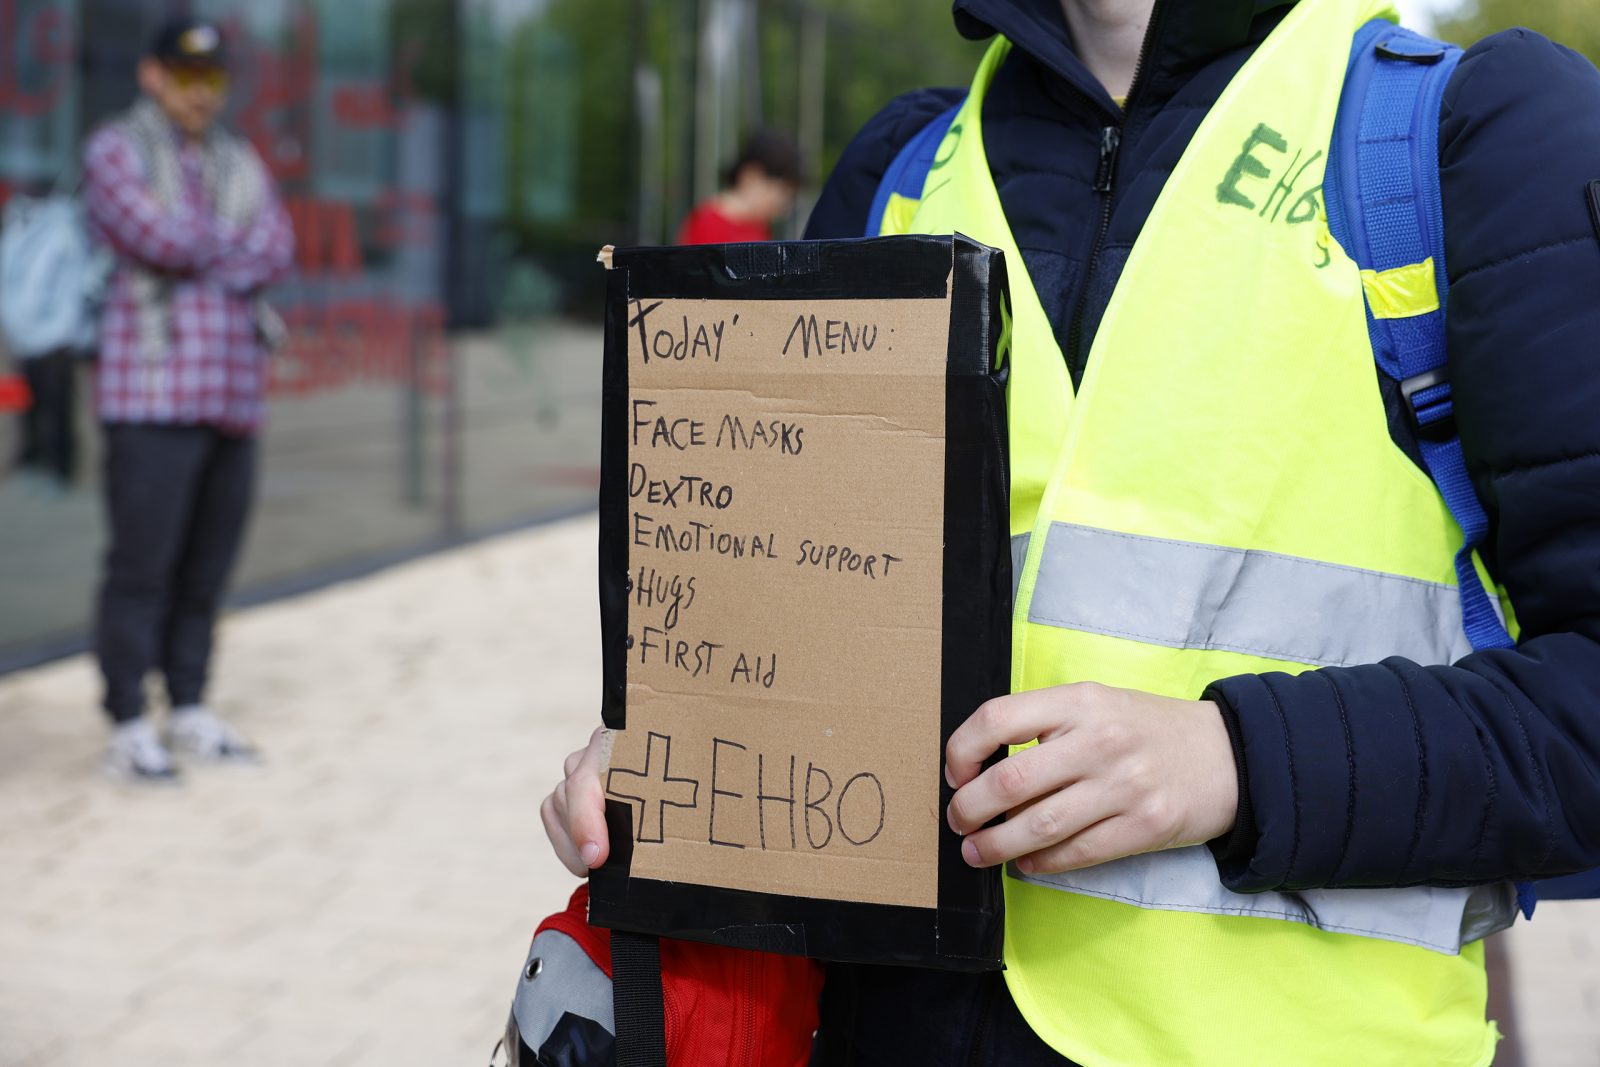 Today' MENU:
FACE MASKS
DEXTRO
EMOTIONAL SUPPORT
Hugs
FIRST AId
EHBO
EHB